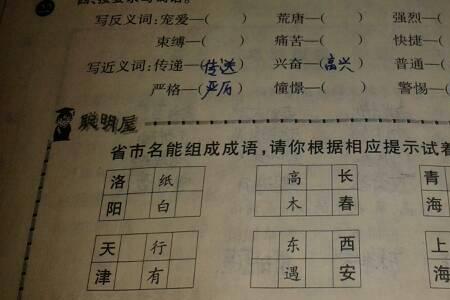 写反义词:宠爱—( ) 荒唐—( ) 强烈—(
束缚—( ) 痛苦—( ) 快捷—(
写近义词:传递—(传送) 兴奋—(高兴) 普通—(
严格—(严厉) 憧憬—( ) 警惕—(
聪明屋
省市名能组成成语,请你根据相应提示试着
洛 纸 高 长 青
阳 白 木 春 海
天 行 东 西 上
津 有 遇 安 海